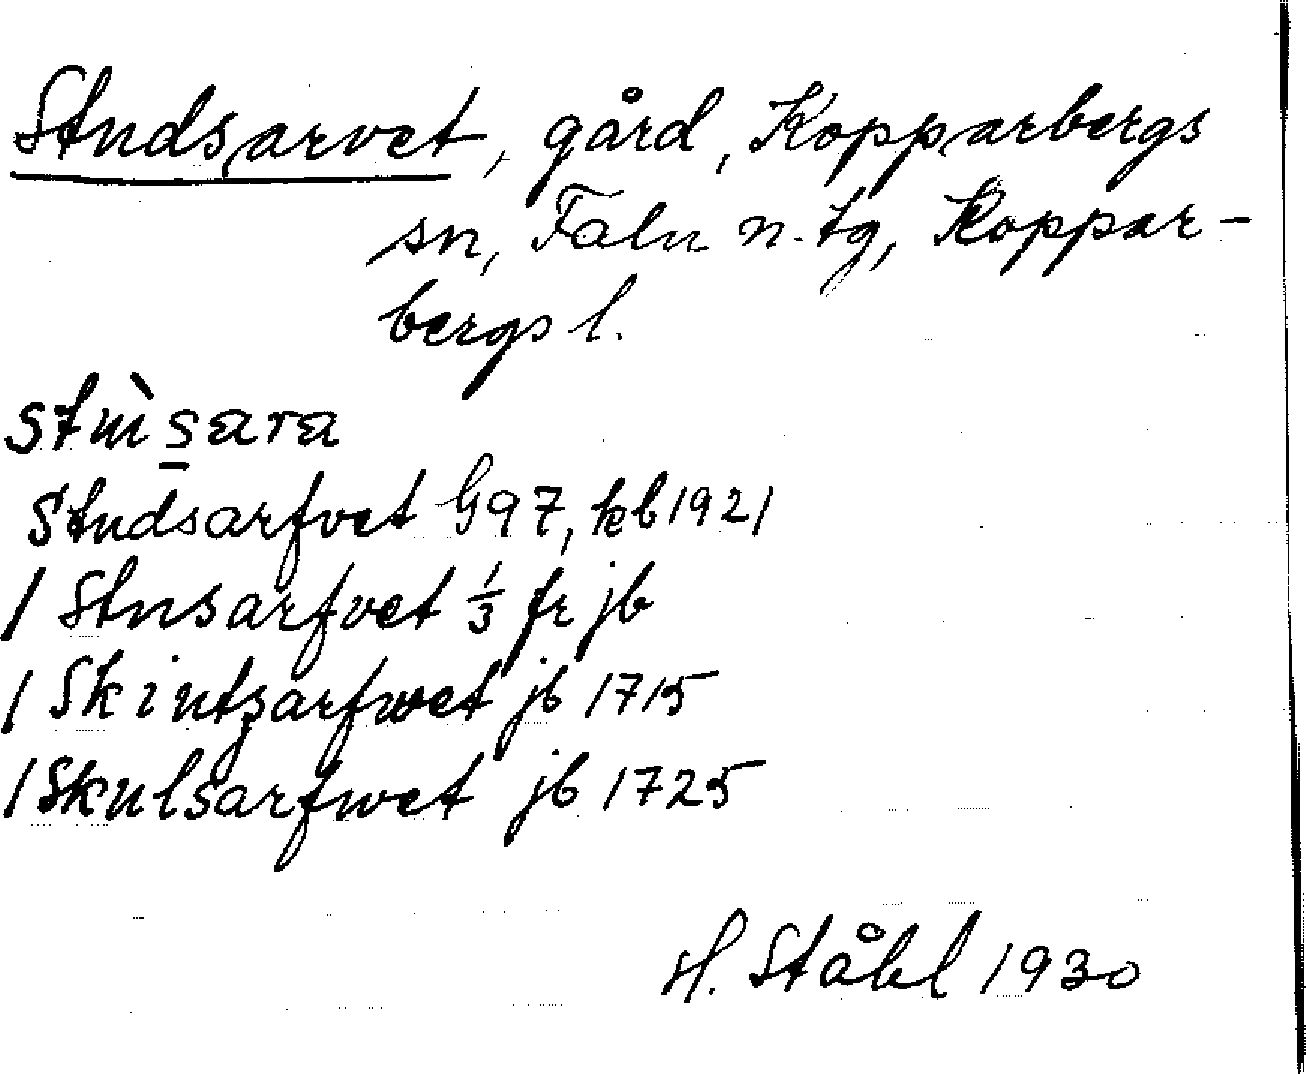 Studsarvet, gård, Kopparbergs
sn, Falu n. tg, Koppar-
bergs l.
stu̇̀sara
Studsarfvet G 97, kb 1921
1 Stusarfvet 1/3 fr jb
1 Skintzarfwet jb 1715
1 Skulsarfwet jb 1725
H. Ståhl 1930